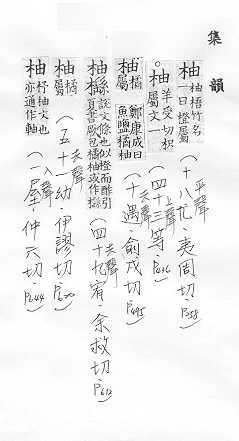 集韻
柚 柚梧竹名一曰橙屬
(平聲十八尤.夷周切.P258)
柚 羊受切枳屬文一
(上聲四十三等.P
柚 橘屬 鄭康成曰橘柚魚鹽
(去聲十遇.俞戍切.P495)
柚櫾 說文條也似橙而酢引夏書厥包橘柚或作櫾
(去聲四十九宥.余救切.P612)
柚 橘屬
(去聲五十一幼.伊謬切.P620)
柚 杼柚文也亦通作軸
(入聲一屋.仲六切.P644)